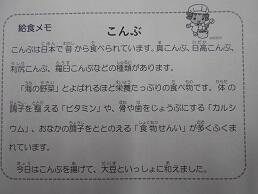 給食メモ
こんぶ
こんぶは日本で昔から食べられています。真こんぶ、日高こんぶ、
利尻こんぶ、羅臼こんぶなどの種類があります。
「海の野菜」とよばれるほど栄養たっぷりの食べ物です。体の
調子を整える「ビタミン」や、骨や歯をじょうぶにする「カルシ
ウム」、おなかの調子をととのえる「食物せんい」が多くふくま
れています。
今日はこんぶを揚げて、大豆といっしょに和えました。